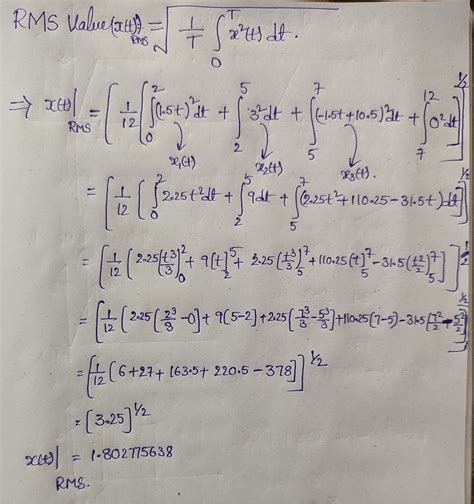 RMS Value(x(t))RMS = √(1/T ∫₀ᵀ x²(t) dt.
⇒ x(t)|RMS = [1/12 [∫₀² (1.5t)² dt + ∫₂⁵ 3² dt + ∫₅⁷ (-1.5t + 10.5)² dt + ∫₇¹² 0² dt]]^1/2
x₁(t) x₂(t) x₃(t).
= [1/12 (∫₀² 2.25t² dt + ∫₂⁵ 9dt + ∫₅⁷ (2.25t² + 110.25 - 31.5t) dt]^1/2
= [1/12 (2.25(t³/3)₀² + 9(t)₂⁵ + 2.25(t³/3)₅⁷ + 110.25(t)₅⁷ - 31.5(t²/2)₅⁷]]^1/2
= [1/12 (2.25(2³/3 - 0) + 9(5-2) + 2.25(7³/3 - 5³/3) + 110.25(7-5) - 31.5(7²/2 - 5²/2)]^1/2
= [1/12 [6 + 27 + 163.5 + 220.5 - 378]]^1/2
= [3.25]^1/2
x(t)|RMS. = 1.802775638